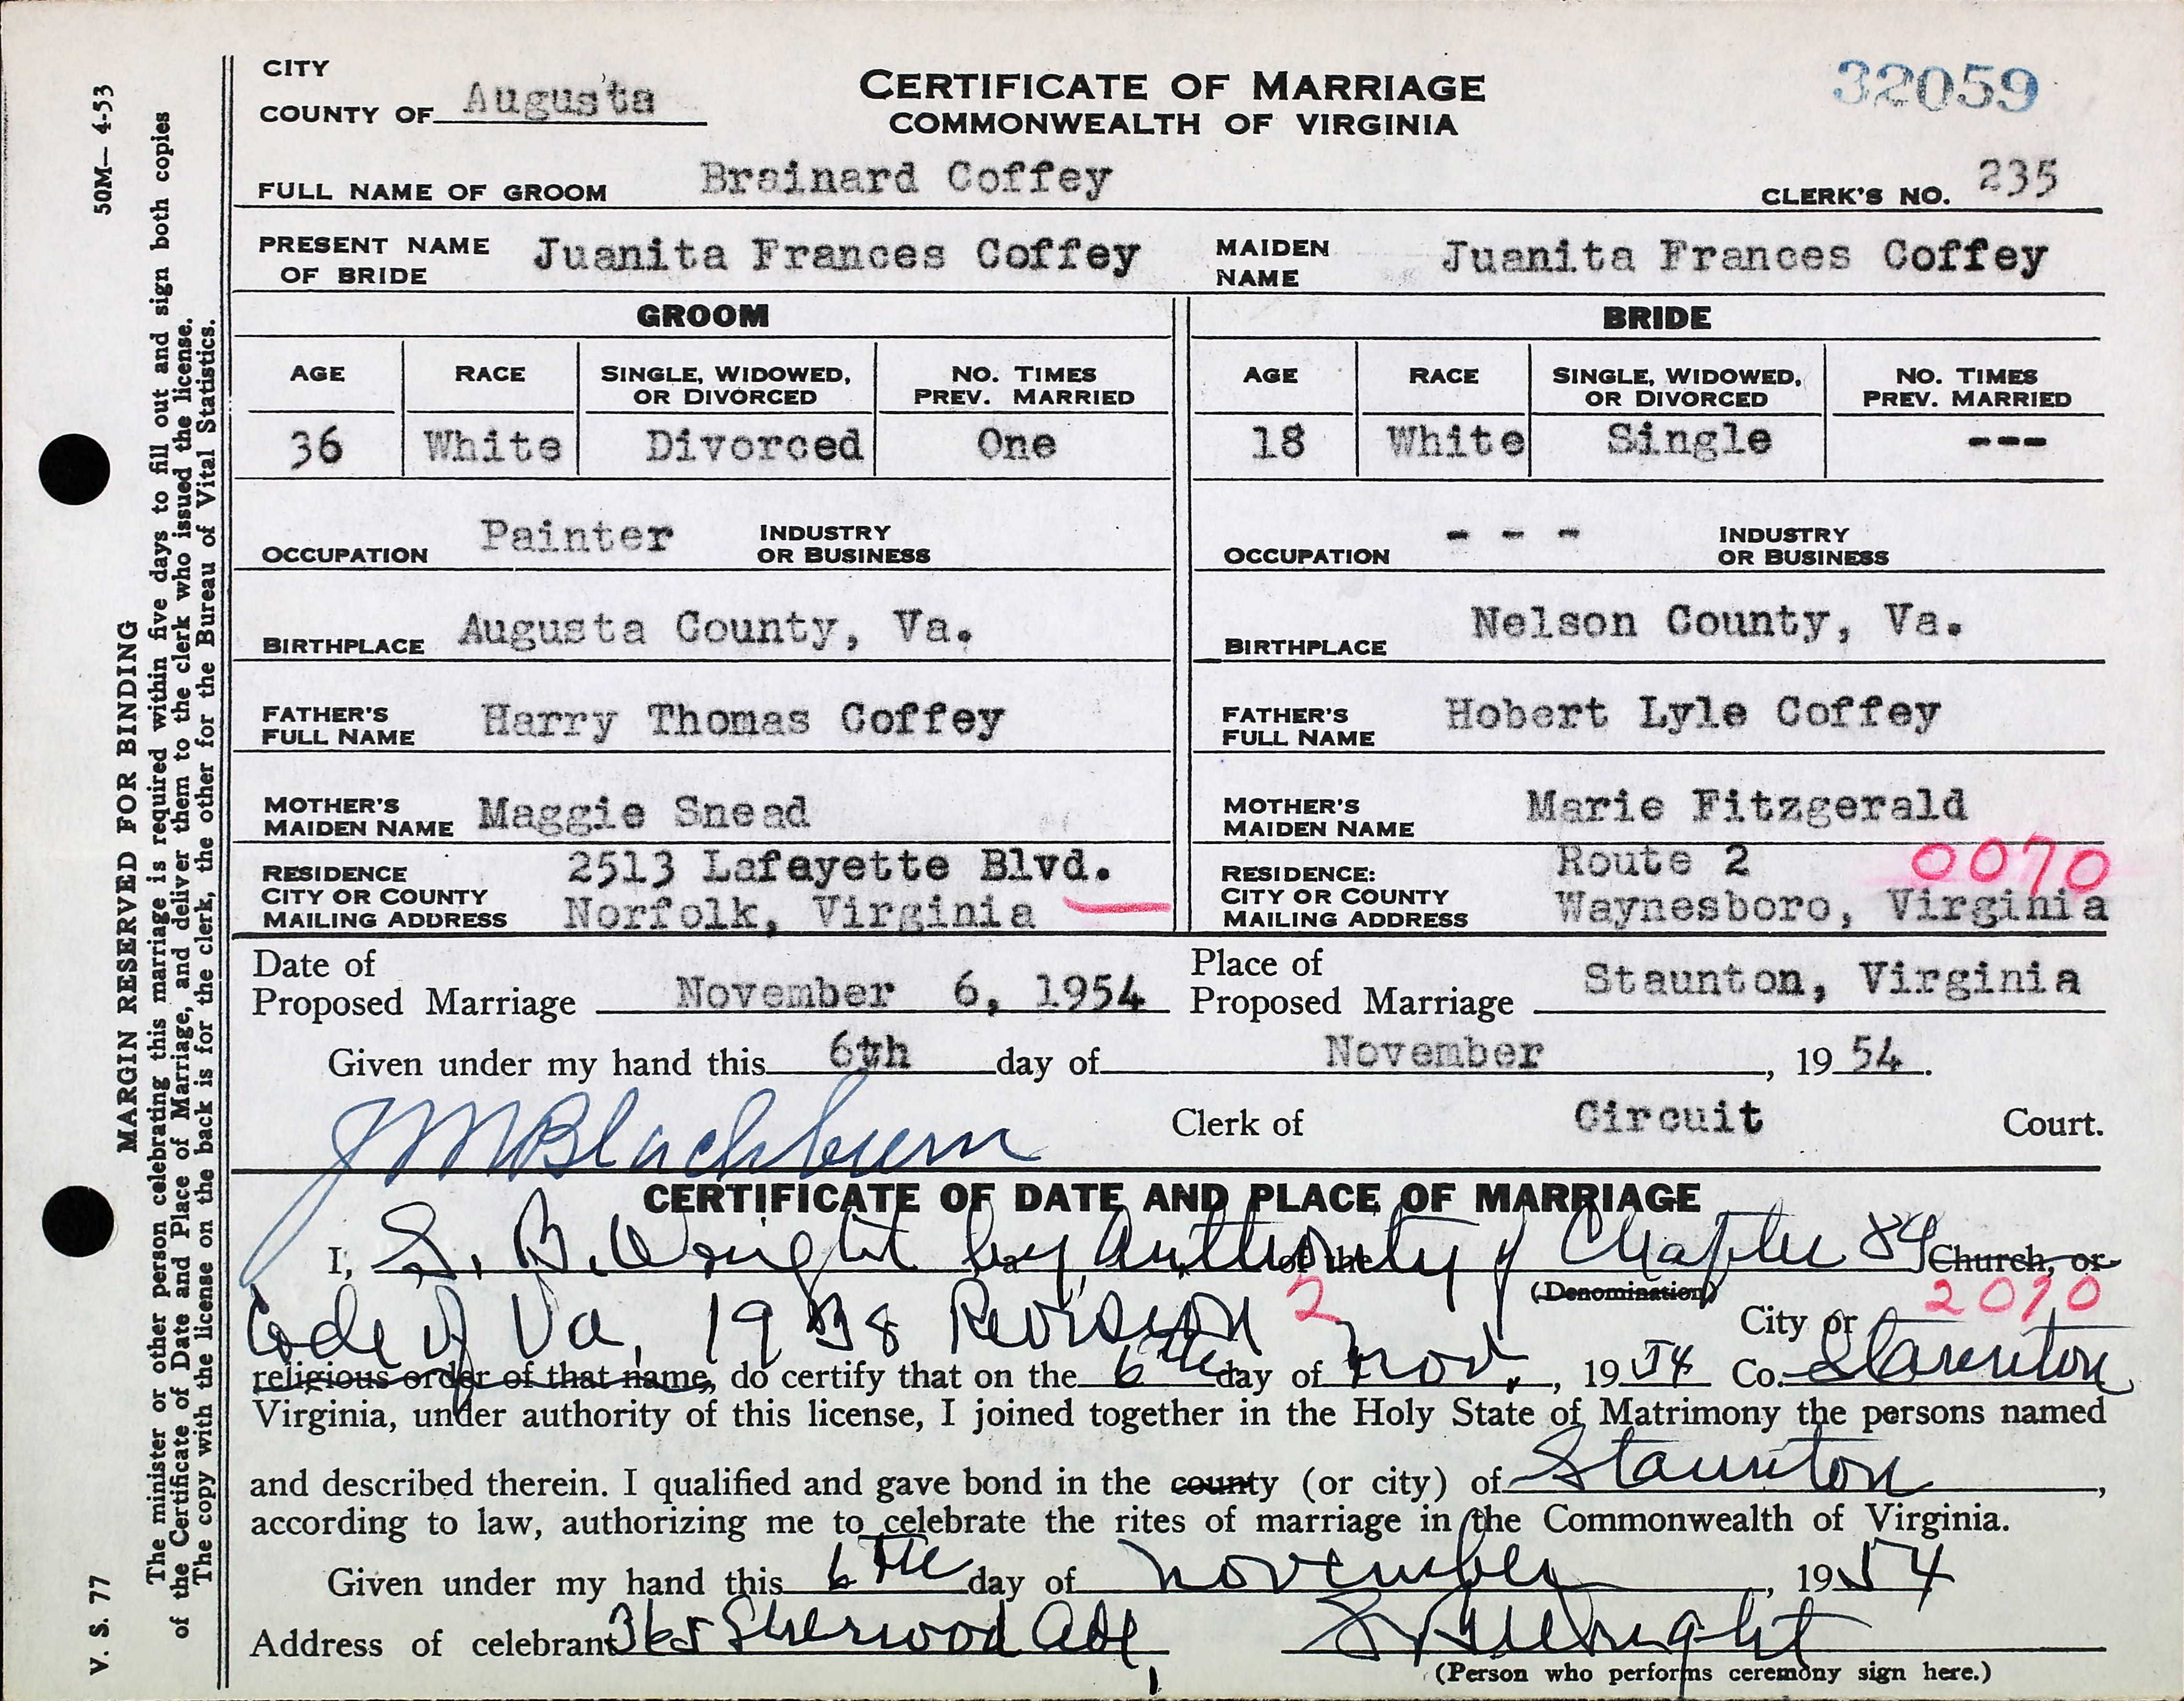 CITY
COUNTY OF Augusta
CERTIFICATE OF MARRIAGE
COMMONWEALTH OF VIRGINIA
32059
FULL NAME OF GROOM Brainard Coffey CLERK'S NO. 235
PRESENT NAME OF BRIDE Juanita Frances Coffey MAIDEN NAME Juanita Frances Coffey
GROOM
AGE RACE SINGLE, WIDOWED, OR DIVORCED NO. TIMES PREV. MARRIED
36 White Divorced One
OCCUPATION Painter INDUSTRY OR BUSINESS
BIRTHPLACE Augusta County, Va.
FATHER'S FULL NAME Harry Thomas Coffey
MOTHER'S MAIDEN NAME Maggie Snead
RESIDENCE 2513 Lafayette Blvd.
CITY OR COUNTY
MAILING ADDRESS Norfolk, Virginia
BRIDE
AGE RACE SINGLE, WIDOWED, OR DIVORCED NO. TIMES PREV. MARRIED
18 White Single ---
OCCUPATION - - - INDUSTRY OR BUSINESS
BIRTHPLACE Nelson County, Va.
FATHER'S FULL NAME Hobert Lyle Coffey
MOTHER'S MAIDEN NAME Marie Fitzgerald
RESIDENCE: Route 2 0070
CITY OR COUNTY
MAILING ADDRESS Waynesboro, Virginia
Date of Proposed Marriage November 6, 1954 Place of Proposed Marriage Staunton, Virginia
Given under my hand this 6th day of November, 1954.
J M Blackburn Clerk of Circuit Court.
CERTIFICATE OF DATE AND PLACE OF MARRIAGE
I, S. B. Wright by Authority of Chapter 84 of the Church, or
(Denomination)
2 2070
Code of Va, 1938 Revision City or
religious order of that name, do certify that on the 6th day of Nov., 1954 Co. Staunton
Virginia, under authority of this license, I joined together in the Holy State of Matrimony the persons named
and described therein. I qualified and gave bond in the county (or city) of Staunton,
according to law, authorizing me to celebrate the rites of marriage in the Commonwealth of Virginia.
Given under my hand this 6th day of November, 1954
Address of celebrant 365 Sherwood Ave, S B Wright
(Person who performs ceremony sign here.)
50M— 4-53
V. S. 77
MARGIN RESERVED FOR BINDING
The minister or other person celebrating this marriage is required within five days to fill out and sign both copies
of the Certificate of Date and Place of Marriage, and deliver them to the clerk who issued the license.
The copy with the license on the back is for the clerk, the other for the Bureau of Vital Statistics.